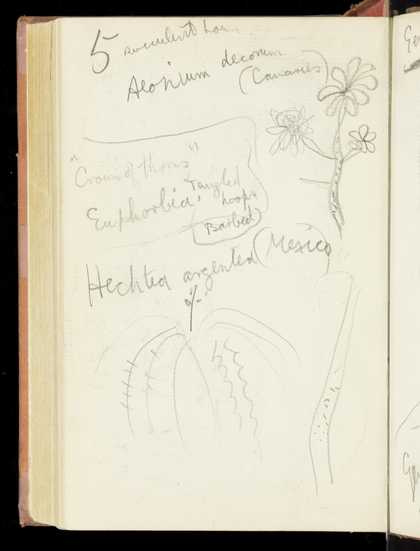 5 succulent
Aeonium decorum
(Canaries)
"Crown of thorns"
Euphorbia. Tangled
hoops
Barbed
Hechtia argentea (Mexico)